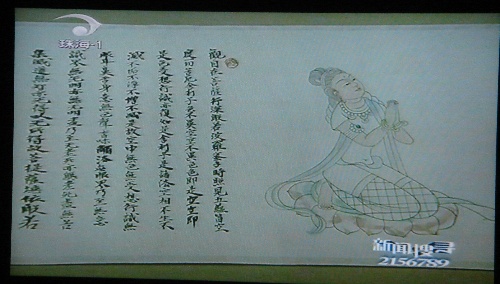 珠海-1
觀自在菩薩行深般若波羅蜜多時照見五蘊皆空
度一切苦厄舍利子色不異空空不異色色即是空空即
是色受想行識亦復如是舍利子是諸法空相不生不
滅不垢不淨不增不減是故空中無色無受想行識無
眼耳鼻舌身意無色聲香味觸法無眼界乃至無意
識界無無明亦無無明盡乃至無老死亦無老死盡無苦
集滅道無智亦無得以無所得故菩提薩埵依般若
新闻搜寻
2156789